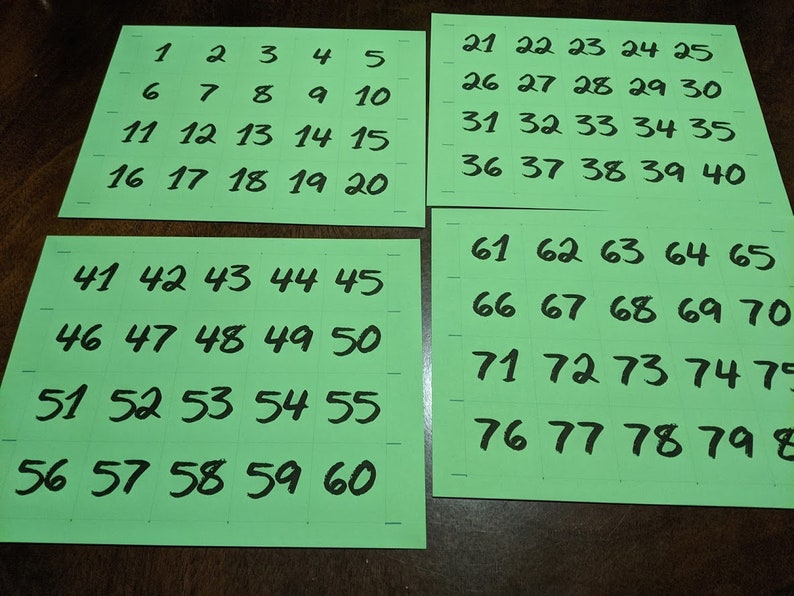 1 2 3 4 5
6 7 8 9 10
11 12 13 14 15
16 17 18 19 20
21 22 23 24 25
26 27 28 29 30
31 32 33 34 35
36 37 38 39 40
41 42 43 44 45
46 47 48 49 50
51 52 53 54 55
56 57 58 59 60
61 62 63 64 65
66 67 68 69 70
71 72 73 74 75
76 77 78 79